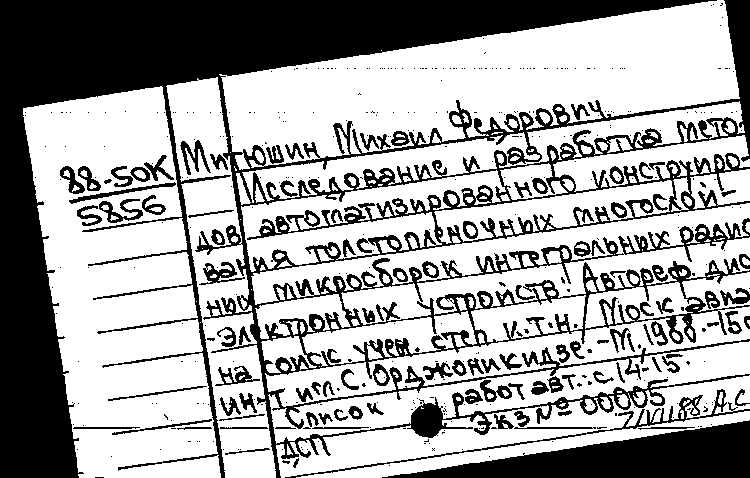 88-50К
5856
Митюшин, Михаил Федорович.
Исследование и разработка мето-
дов автоматизированного конструиро-
вания толстопленочных многослой-
ных микросборок интегральных радио
-электронных устройств": Автореф. дис
на соиск. учен. степ. к.т.н./ Моск. авиа
ин-т им. С. Орджоникидзе. -М., 1988. -15
Список работ авт.: с. 14-15.
ДСП Экз № 00005
7/VII 88. А.С